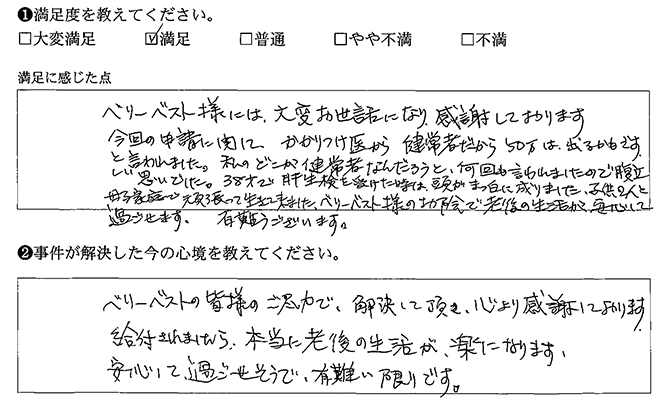 ❶満足度を教えてください。
□大変満足 ☑満足 □普通 □やや不満 □不満
満足に感じた点
ベリーベスト様には、大変お世話になり、感謝しております
今回の申請に関して、かかりつけ医から健常者だから50万は、出るかもです
と言われました。私のどこが健常者なんだろうと、何回も言われましたので腹立
しい思いでした。38才で肝生検を受けた時は、頭がまっ白に成りました、子供2人と
母子家庭で頑張って生きて来ました、ベリーベスト様の力で老後の生活が、安心して
過ごせます。 有難うございます。
❷事件が解決した今の心境を教えてください。
ベリーベストの皆様のご尽力で、解決して頂き、心より感謝しております
給付されましたら、本当に老後の生活が、楽になります、
安心して、過ごせそうで、有難い限りです。